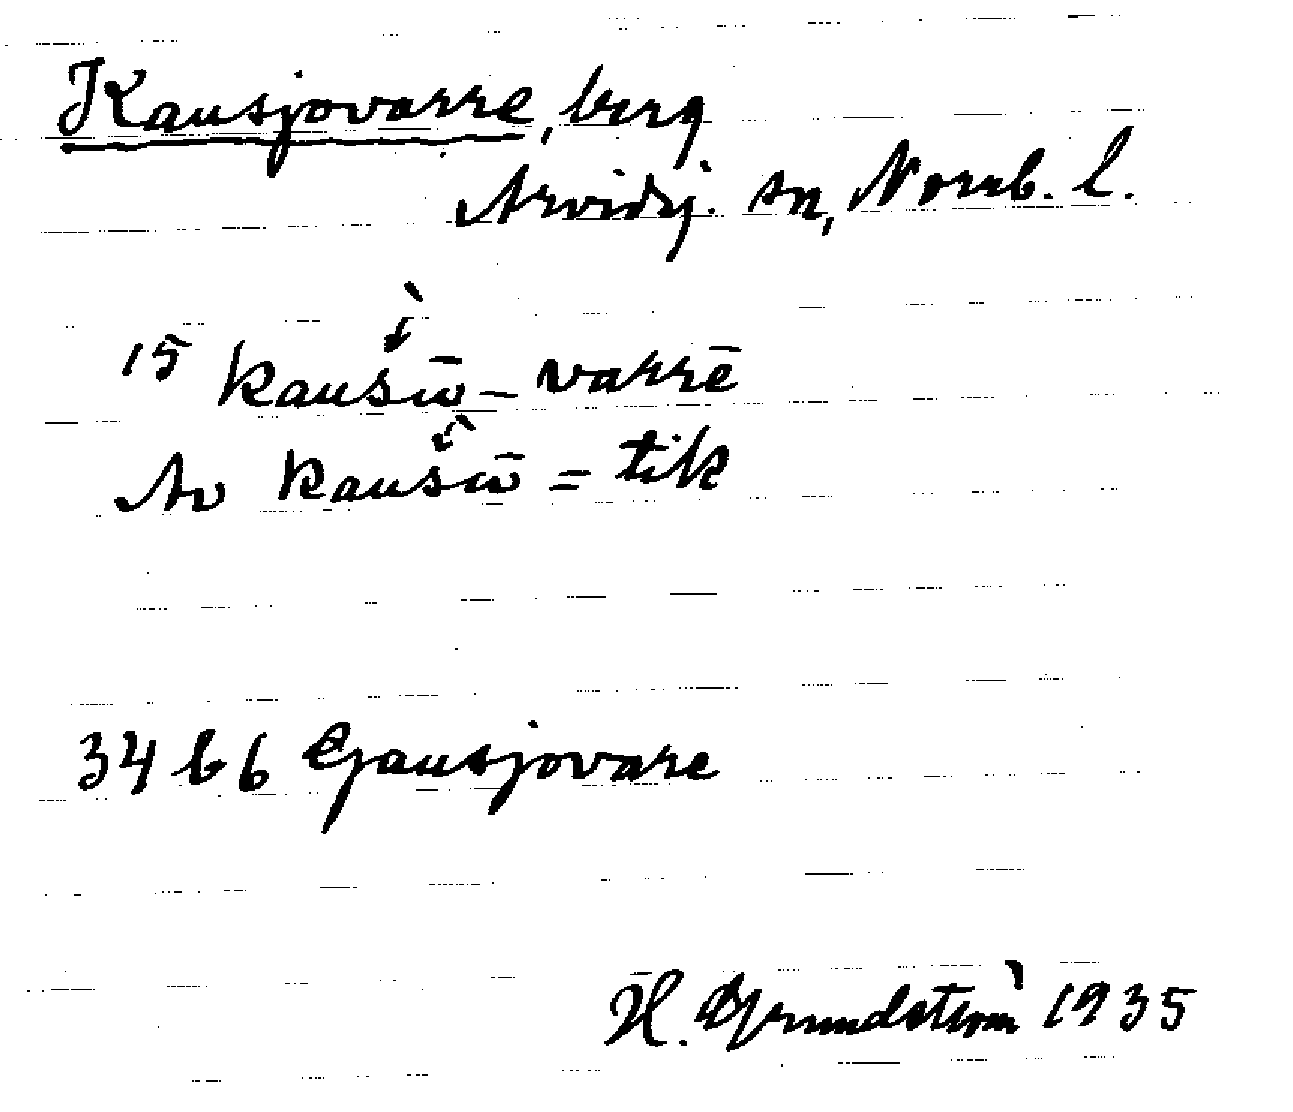 Kausjovarre, berg
Arvidsj. sn, Norrb. l.
15 kausū̀ - varrē
Av kausū̀ = tik
34 b 6 Gausjovare
H. Grundström 1935